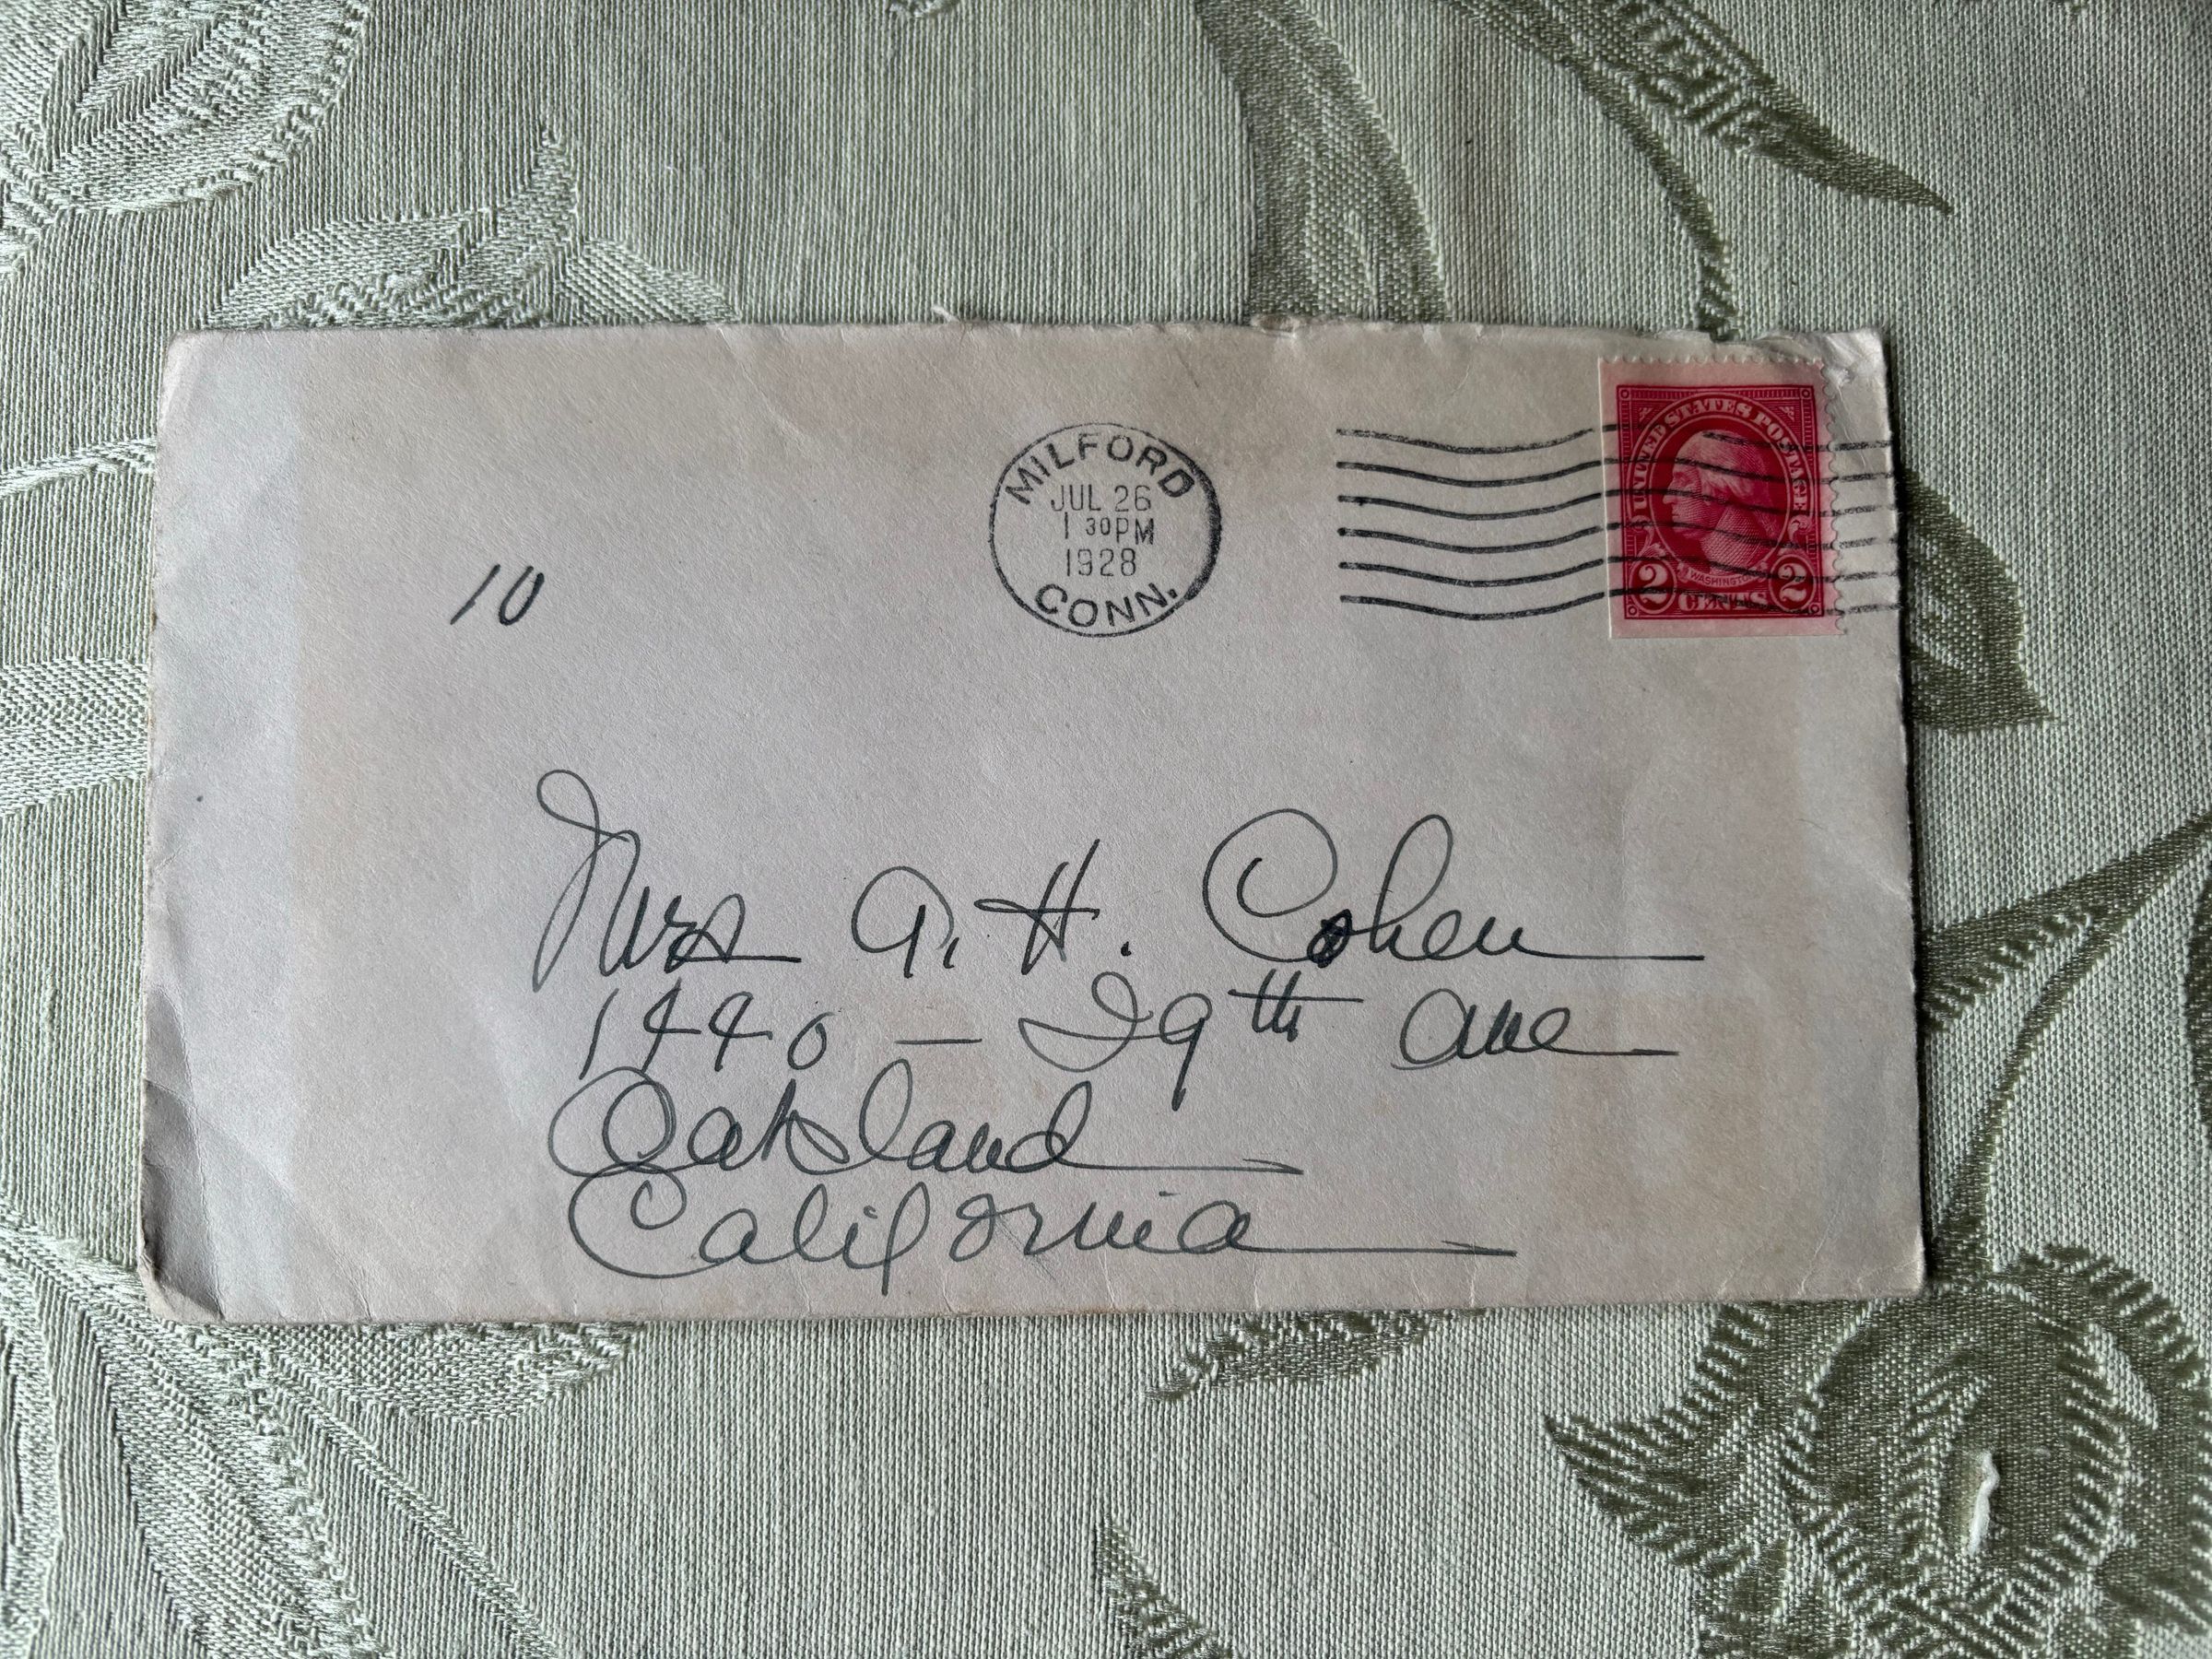 MILFORD
JUL 26
1 30PM
1928
CONN.
UNITED STATES POSTAGE
WASHINGTON
2 CENTS 2
10
Mrs A. H. Cohen
1440 – 29th Ave
Oakland
California